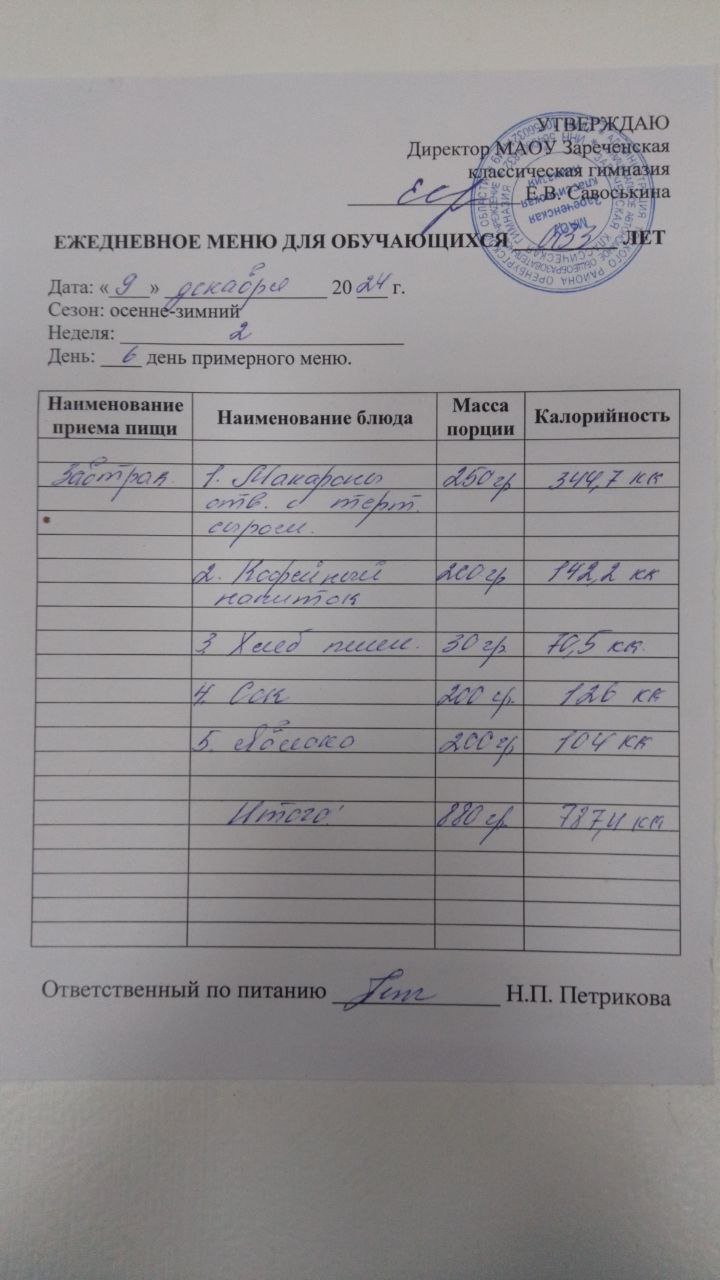 УТВЕРЖДАЮ
Директор МАОУ Зареченская
классическая гимназия
Е.В. Савоськина
МАОУ
Зареченская
классическая
гимназия
ЕЖЕДНЕВНОЕ МЕНЮ ДЛЯ ОБУЧАЮЩИХСЯ ОВЗ ЛЕТ
Дата: « 9 » декабря 20 24 г.
Сезон: осенне-зимний
Неделя: 2
День: 6 день примерного меню.
Наименование приема пищи Наименование блюда Масса порции Калорийность
Завтрак 1. Макароны 250 гр 344,7 кк
отв. с терт.
сыром.
2. Кофейный 200 гр 142,2 кк
напиток
3. Хлеб пшен. 30 гр 70,5 кк.
4. Сок 200 гр. 126 кк
5. Яблоко 200 гр 104 кк
Итого: 880 гр. 787,4 кк
Ответственный по питанию Н.П. Петрикова